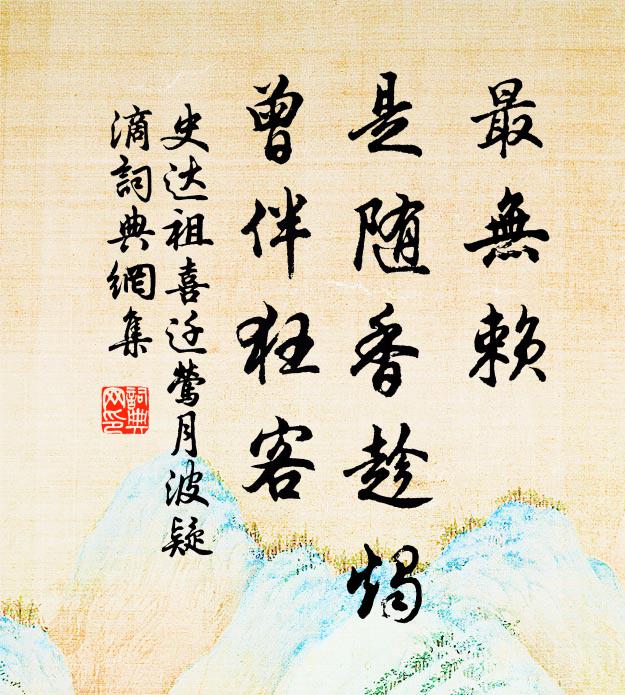 最無賴
是随香趁燭
曾伴狂客
史达祖喜迁莺月波疑
滴詞典網集
詞典
网印